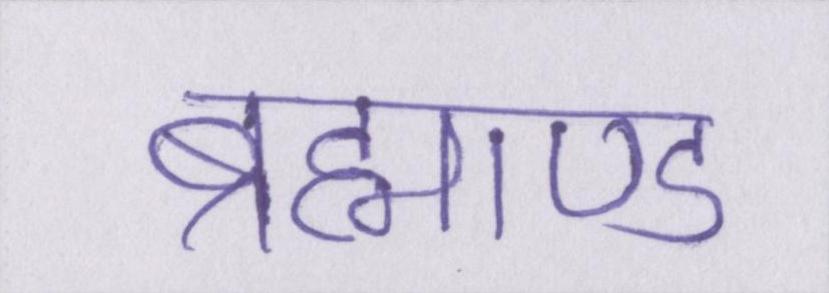 ब्रह्माण्ड